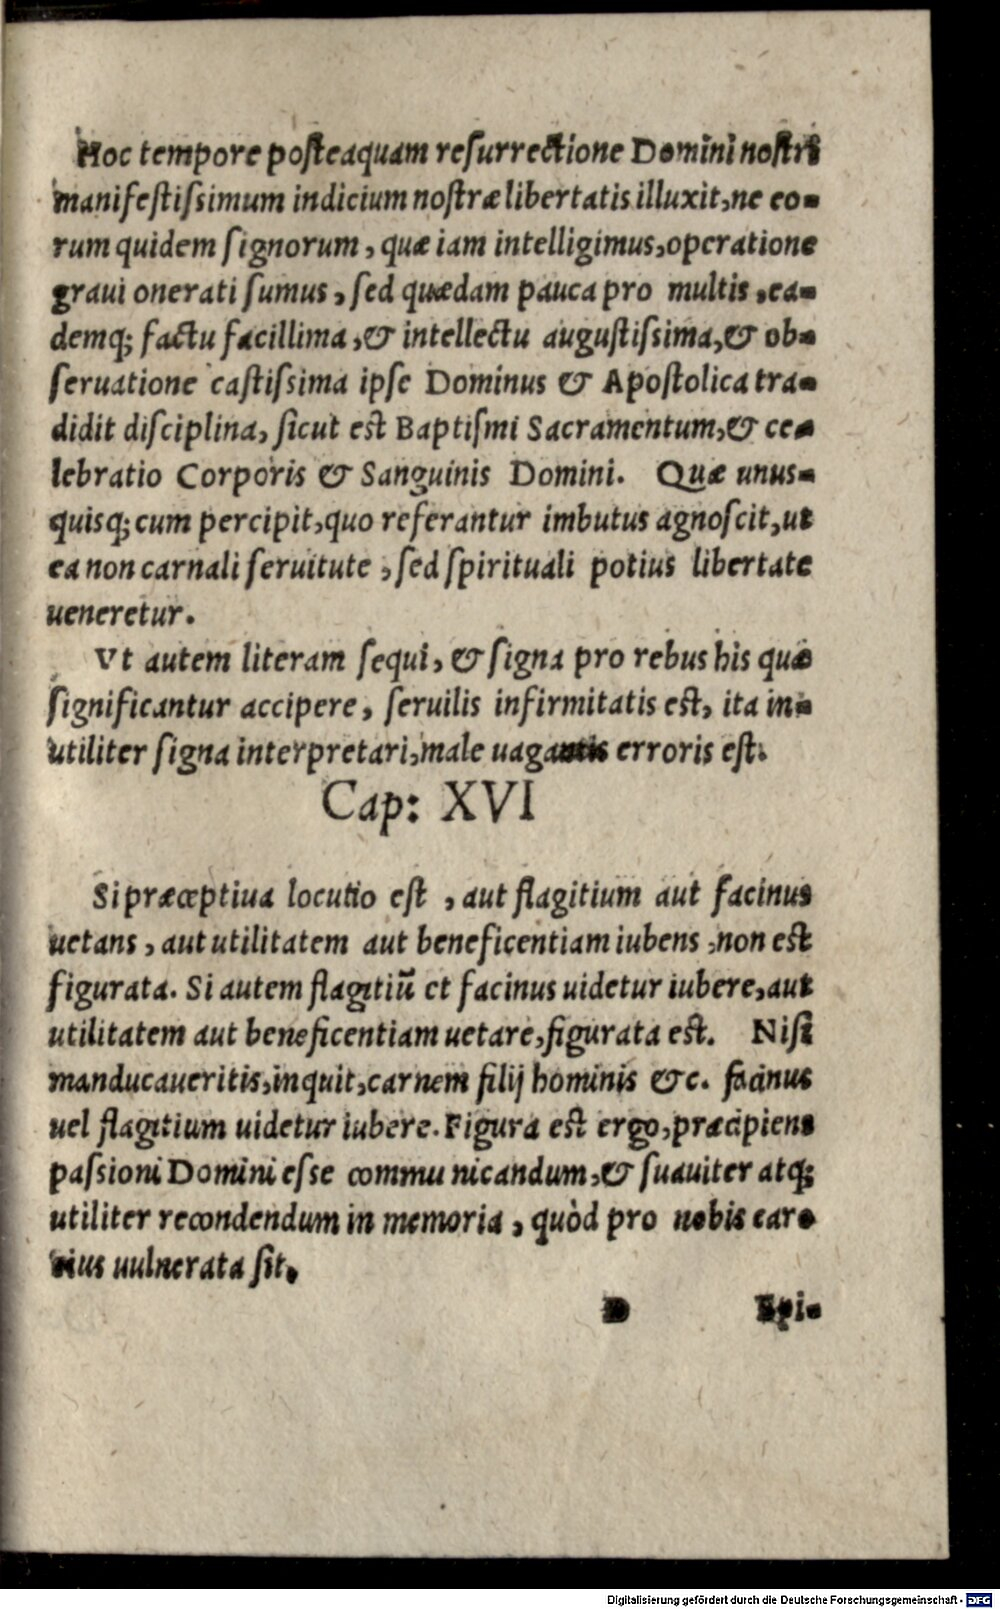 Hoc tempore posteaquam resurrectione Domini nostri
manifestissimum indicium nostræ libertatis illuxit, ne eo-
rum quidem signorum, quæ iam intelligimus, operatione
graui onerati sumus, sed quædam pauca pro multis, ea-
demq; factu facillima, & intellectu augustissima, & ob-
seruatione castissima ipse Dominus & Apostolica tra-
didit disciplina, sicut est Baptismi Sacramentum, & ce-
lebratio Corporis & Sanguinis Domini. Quæ unus-
quisq; cum percipit, quo referantur imbutus agnoscit, ut
ea non carnali seruitute, sed spirituali potius libertate
ueneretur.
Vt autem literam sequi, & signa pro rebus his quæ
significantur accipere, seruilis infirmitatis est, ita in-
utiliter signa interpretari, male uagantis erroris est.
Cap: XVI
Si præceptiua locutio est, aut flagitium aut facinus
uetans, aut utilitatem aut beneficentiam iubens, non est
figurata. Si autem flagitiũ et facinus uidetur iubere, aut
utilitatem aut beneficentiam uetare, figurata est. Nisi
manducaueritis, inquit, carnem filij hominis &c. facinus
uel flagitium uidetur iubere. Figura est ergo, præcipiens
passioni Domini esse communicandum, & suauiter atq;
utiliter recondendum in memoria, quòd pro nobis caro
eius uulnerata sit.
D Epi-
Digitalisierung gefördert durch die Deutsche Forschungsgemeinschaft - DFG